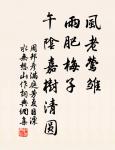 風老鶯雛
雨肥梅子
午陰嘉樹清圓
周邦彥滿庭芳夏日溧
水無想山作詞典網集